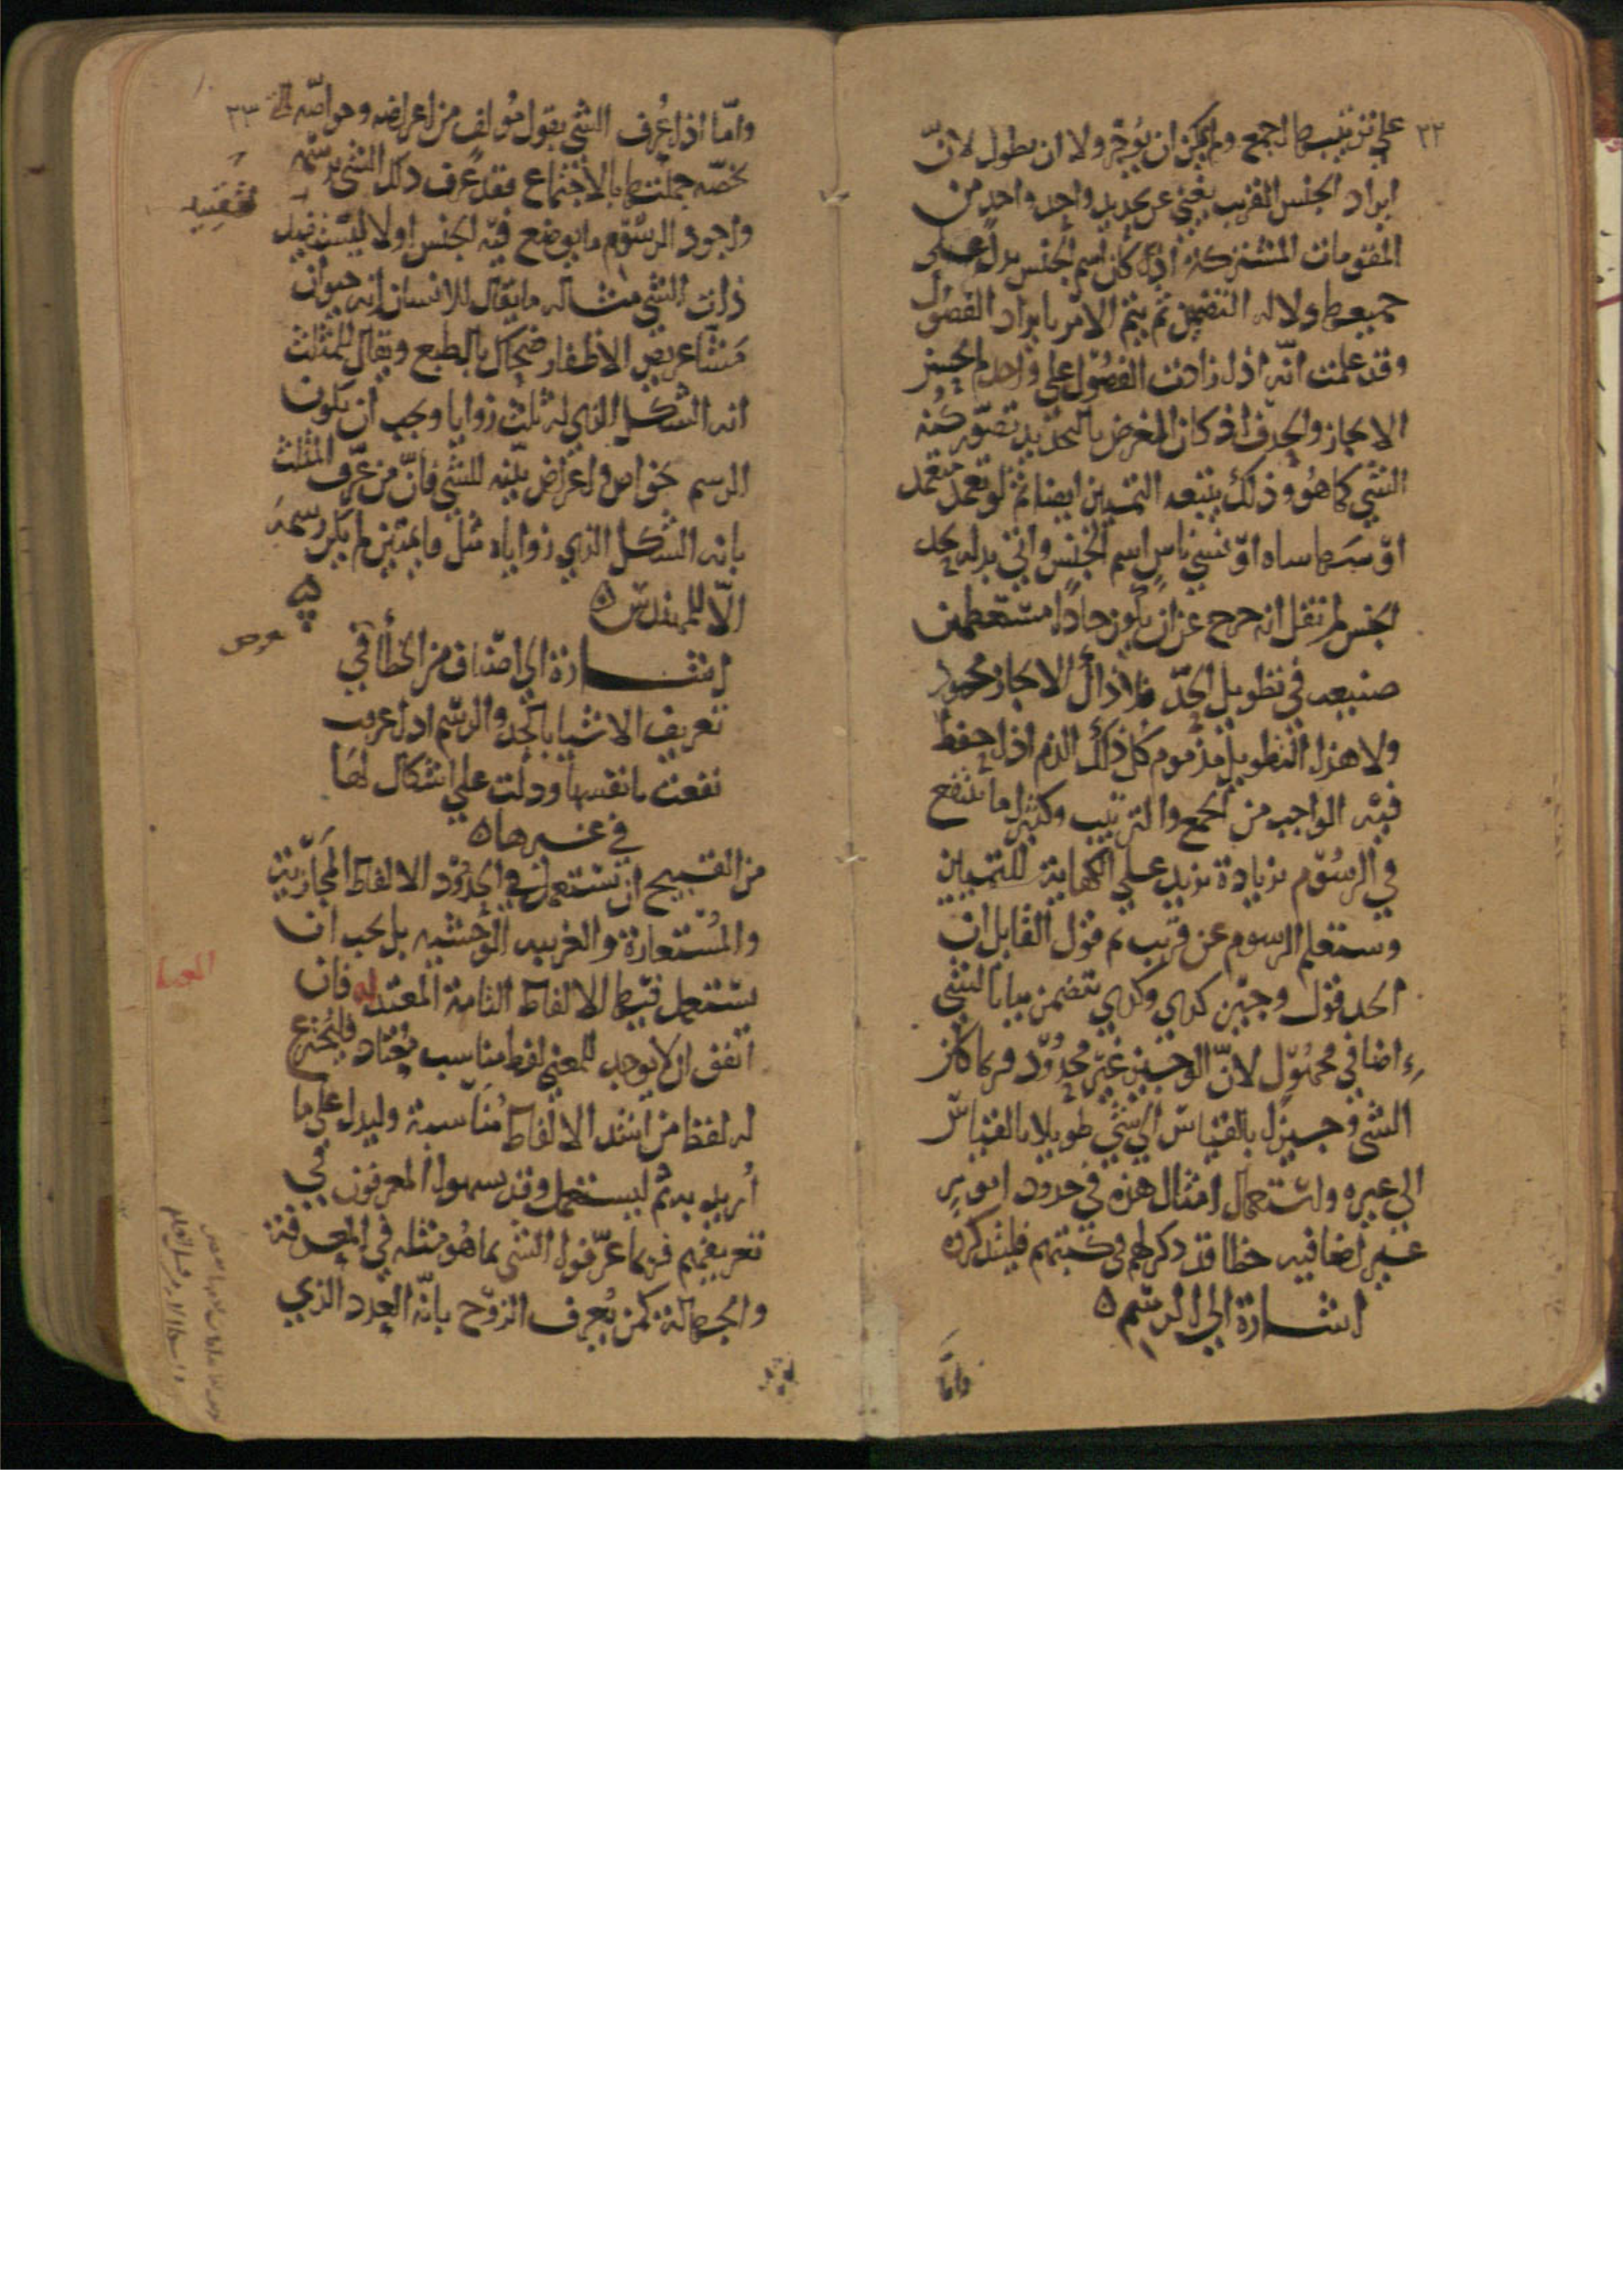 ٣٢
علي ترتيبها اجمع ولم يمكن ان يوجز ولا ان يطول لانّ
ايراد الجنس القريب يغني عن تعديد واحد واحد من
المقومات المشتركة اذا كان اسم الجنس يدل على
جميعها دلاله التضمن ثم يتم الامر بايراد الفصول
وقد علمت انّه اذا زادت الفصول علي واحد لم يحسن
الايجاز والحذف اذ كان الغرض بالتحديد تصوّر كنه
الشي كما هو وذلك يتبعه التمييز ايضا ثم لو تعمد متعمد
او سها ساه او نسي ناس اسم الجنس واتي بدله بحد
الجنس لم نقل انه خرج عن ان يكون حادا مستعظمين
صنيعه في تطويل الحدّ فلا ذاك الايجاز محمود
ولا هذا التطويل مذموم كل ذلك الذم اذا حفظ
فيه الواجب من الجمع والترتيب وكثيرا ما ينتفع
في الرسوم بزيادة تزيد علي الكفاية للتمييز
وستعلم الرسوم عن قريب ثم قول القايل ان
الحد قول وجيز كذي وكذي يتضمن بيانا لشي
اضافي مجهول لانّ الوجيز غير محدود فربما كان
الشي وجيزا بالقياس الي شي طويلا بالقياس
الي غيره واستعمال امثال هذه في حدود امور
غير اضافيه خطا قد ذكر لهم في كتبهم فليتذكروه
اشارة الي الرسم ٥
وامّا
٣٣
وامّا اذا عُرف الشي بقول مُولف من اعراضه وخواصّه التي
تخصّه جملتها بالاجتماع فقد عُرف ذلك الشي برسمه
واجود الرسوم ما يوضع فيه الجنس اولا ليفيد
ذات الشي مثاله ما يقال للانسان انه حيوان
مشّا عريض الاظفار ضحّاك بالطبع ويقال للمثلث
انه الشكل الذي له ثلث زوايا ويجب ان يكون
الرسم بخواص واعراض بيّنه للشي فانّ من عرّف المثلث
بانه الشكل الذي زواياه مثل قايمتين لم يكن رسمه
الّا للمهندس ٥
اشارة الى اصناف من الخطأ في
تعريف الاشيا بالحد والرسم اذا عرفت
نفعت بانفسها ودلت علي اشكال لها
في غيرها ٥
من القبيح ان يستعمل في الحدود الالفاظ المجازية
والمستعارة والغريبه الوحشيه بل يجب ان
يستعمل فيها الالفاظ الثابتة المعتدله فان
اتفق ان لا يوجد للمعني لفظ مناسب مُعتاد فليخترع
له لفظ من اشد الالفاظ مناسبة وليدل على ما
أُريد به ثم ليستعمل وقد يسهوا المعرفون في
تعريفهم فربما عرّفوا الشي بما هو مثله في المعرفة
والجهالة كمن يُعرف الزوج بانّه العدد الذي